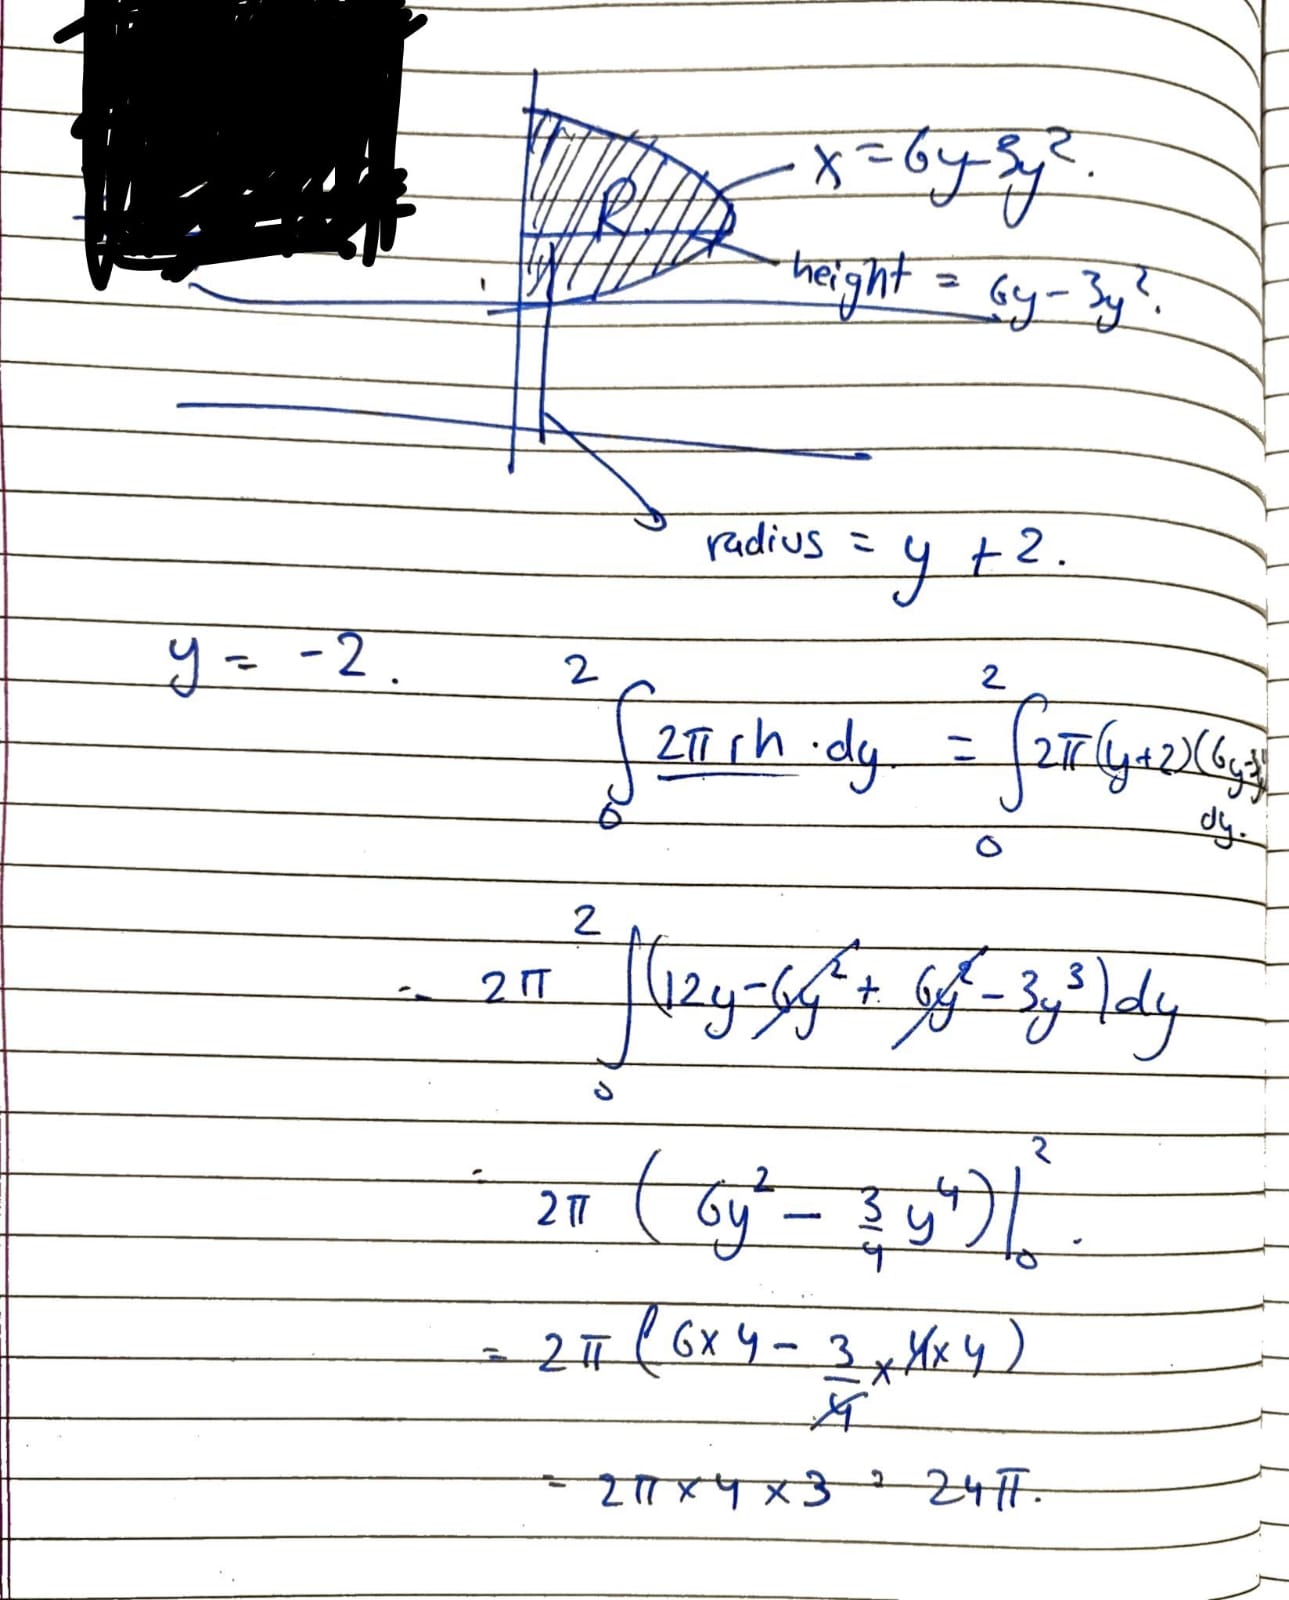 x = 6y-3y².
R
height = 6y - 3y².
radius = y + 2.
y = -2.
∫₀² 2π rh · dy = ∫₀² 2π(y+2)(6y-3y²) dy.
= 2π ∫₀² (12y - 6y² + 6y² - 3y³) dy
= 2π (6y² - 3/4 y⁴)|₀² .
= 2π (6x4 - 3/4 x 4x4)
= 2π x 4 x 3 = 24π.